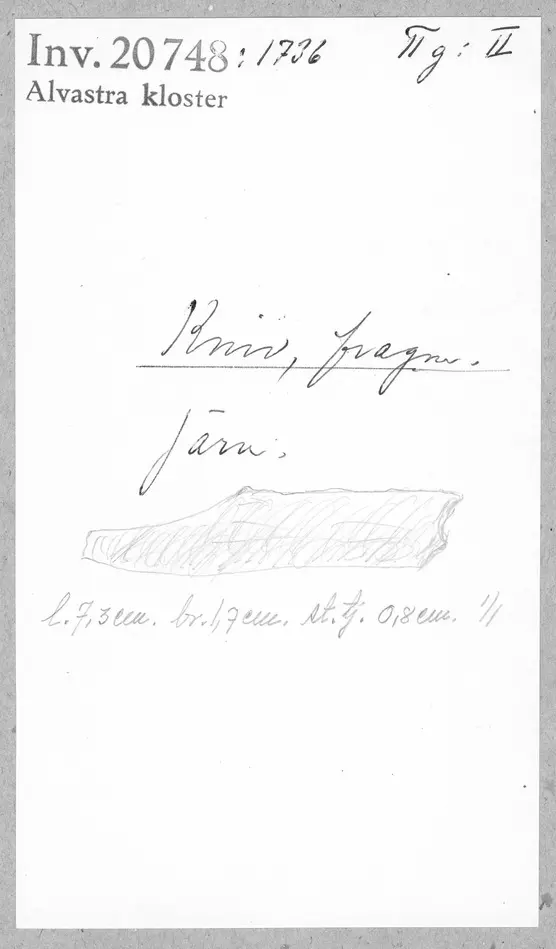 Inv. 20748:1736 IIg: II
Alvastra kloster
Kniv, fragm.
Järn.
l. 7,3 cm. br. 1,7 cm. st. tj. 0,8 cm. 1/1